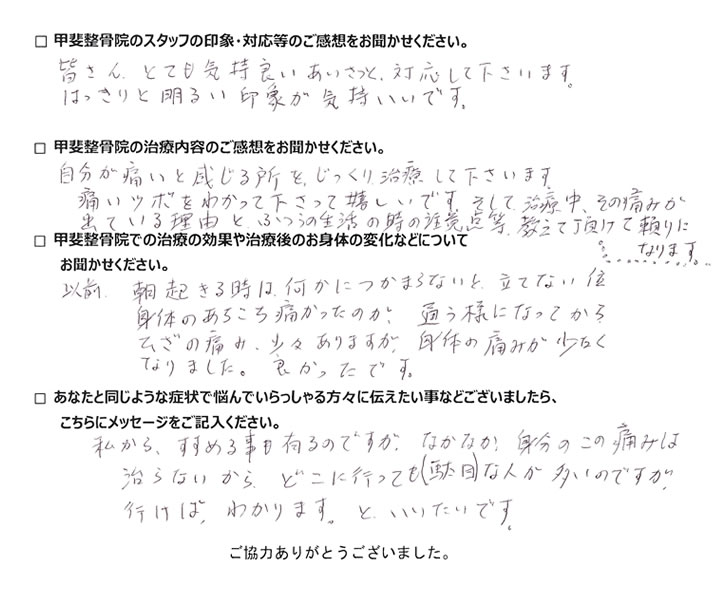 □ 甲斐整骨院のスタッフの印象・対応等のご感想をお聞かせください。
皆さん、とても気持良いあいさつと、対応して下さいます。
はっきりと明るい印象が気持いいです。
□ 甲斐整骨院の治療内容のご感想をお聞かせください。
自分が痛いと感じる所を、じっくり治療して下さいます
痛いツボをわかって下さって嬉しいです。そして、治療中、その痛みが
出ている理由と、ふつうの生活の時の注意点等、教えて頂けて頼りに
なります。
□ 甲斐整骨院での治療の効果や治療後のお身体の変化などについて
お聞かせください。
以前、朝起きる時は、何かにつかまらないと、立てない位
身体のあちこち痛かったのが、通う様になってから
ひざの痛み、少々ありますが、身体の痛みが少なく
なりました。良かったです。
□ あなたと同じような症状で悩んでいらっしゃる方々に伝えたい事などございましたら、
こちらにメッセージをご記入ください。
私から、すすめる事も有るのですが、なかなか、身分のこの痛みは
治らないから、どこに行っても(駄目)な人が多いのですが、
行けば、わかります。と、いいたいです。
ご協力ありがとうございました。